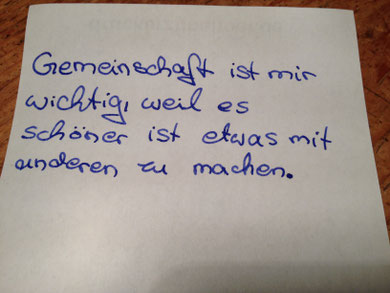 Gemeinschaft ist mir
wichtig, weil es
schöner ist etwas mit
anderen zu machen.